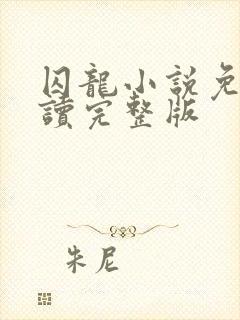 囚龍小說免
讀完整版
朱尼